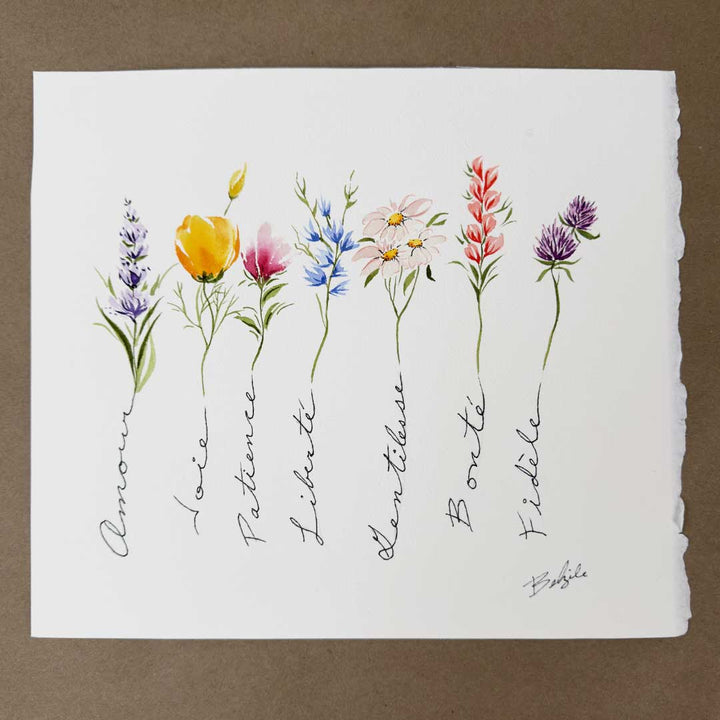 Amour
Joie
Patience
Liberté
Gentilesse
Bonté
Fidèle
Belzile